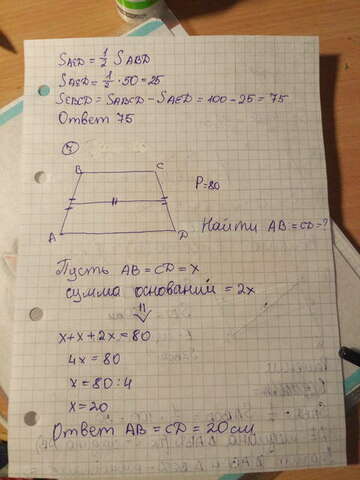 S_AED = 1/2 S_ABD
S_AED = 1/2 · 50 = 25
S_EBCD = S_ABCD - S_AED = 100 - 25 = 75
Ответ 75
B C
P=80
A D
Найти AB = CD = ?
Пусть AB = CD = x
сумма оснований = 2x
x + x + 2x = 80
4x = 80
x = 80 : 4
x = 20
Ответ AB = CD = 20 см